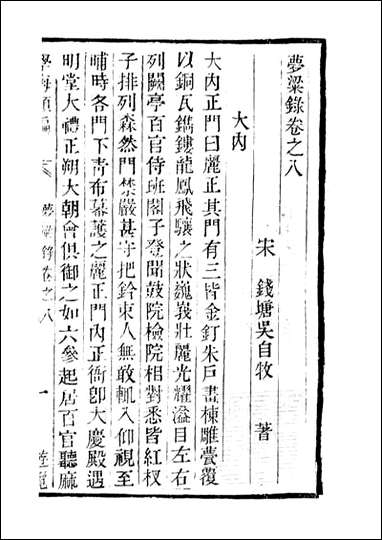 夢粱錄卷之八
宋 錢塘吳自牧 著
大内
大内正門曰麗正其門有三皆金釘朱戶畫棟雕甍覆
以銅瓦鐫鏤龍鳳飛驤之狀巍峩壯麗光耀溢目左右
列闕亭百官侍班閣子登聞鼓院檢院相對悉皆紅杈
子排列森然門禁嚴甚守把鈐束人無敢輒入仰視至
晡時各門下青布幕護之麗正門内正衙卽大慶殿遇
明堂大禮正朔大朝會俱御之如六參起居百官聽麻
學海類編 夢粱錄卷之八 一